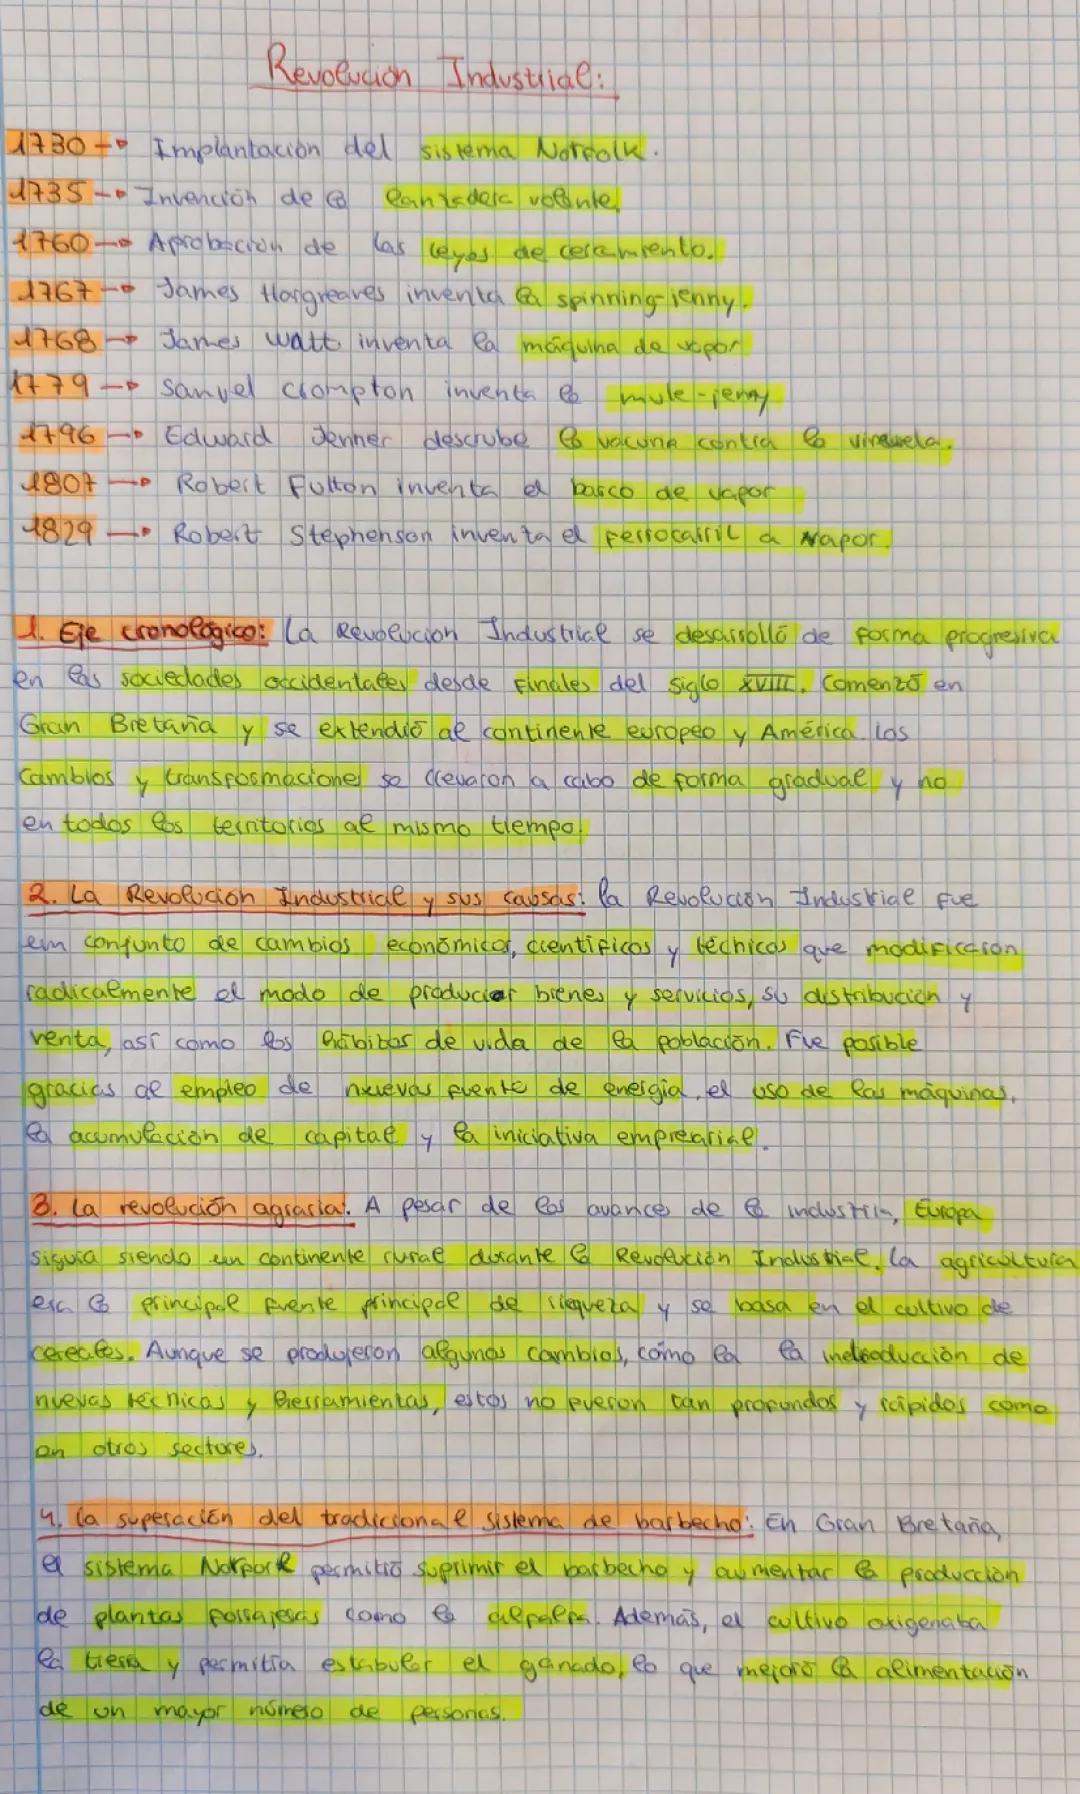 Revolución Industrial:
1730 → Implantación del sistema Norfolk.
1735 → Invención de la lanzadera volante.
1760 → Aprobación de las leyes de cercamiento.
1767 → James Hargreaves inventa la spinning-jenny.
1768 → James Watt inventa la máquina de vapor
1779 → Samuel Crompton inventa la mule-jenny
1796 → Edward Jenner descrube la vacuna contra la viruela.
1807 → Robert Fulton inventa el barco de vapor
1829 → Robert Stephenson inventa el ferrocarril a vapor.
1. Eje cronológico: La Revolución Industrial se desarrolló de forma progresiva
en las sociedades occidentales desde finales del siglo XVIII. Comenzó en
Gran Bretaña y se extendió al continente europeo y América. Los
cambios y transformaciones se llevaron a cabo de forma gradual y no
en todos los territorios al mismo tiempo.
2. La Revolución Industrial y sus causas: la Revolución Industrial fue
un conjunto de cambios económicos, científicos y técnicos que modificaron
radicalmente el modo de producir bienes y servicios, su distribución y
venta, así como los hábitos de vida de la población. Fue posible
gracias al empleo de nuevas fuente de energía, el uso de las máquinas,
la acumulación de capital y la iniciativa empresarial.
3. La revolución agraria: A pesar de los avances de la industria, Europa
siguia siendo un continente rural durante la Revolución Industrial. La agricultura
era la principal fuente principal de riqueza y se basa en el cultivo de
cereales. Aunque se produjeron algunos cambios, como la la introducción de
nuevas técnicas y herramientas, estos no fueron tan profundos y rápidos como
en otros sectores.
4. La superación del tradicional sistema de barbecho: En Gran Bretaña,
el sistema Norfork permitió suprimir el barbecho y aumentar la producción
de plantas forrajeras como la alfalfa. Además, el cultivo oxigenaba
la tierra y permitía estabular el ganado, lo que mejoró la alimentación
de un mayor número de personas.